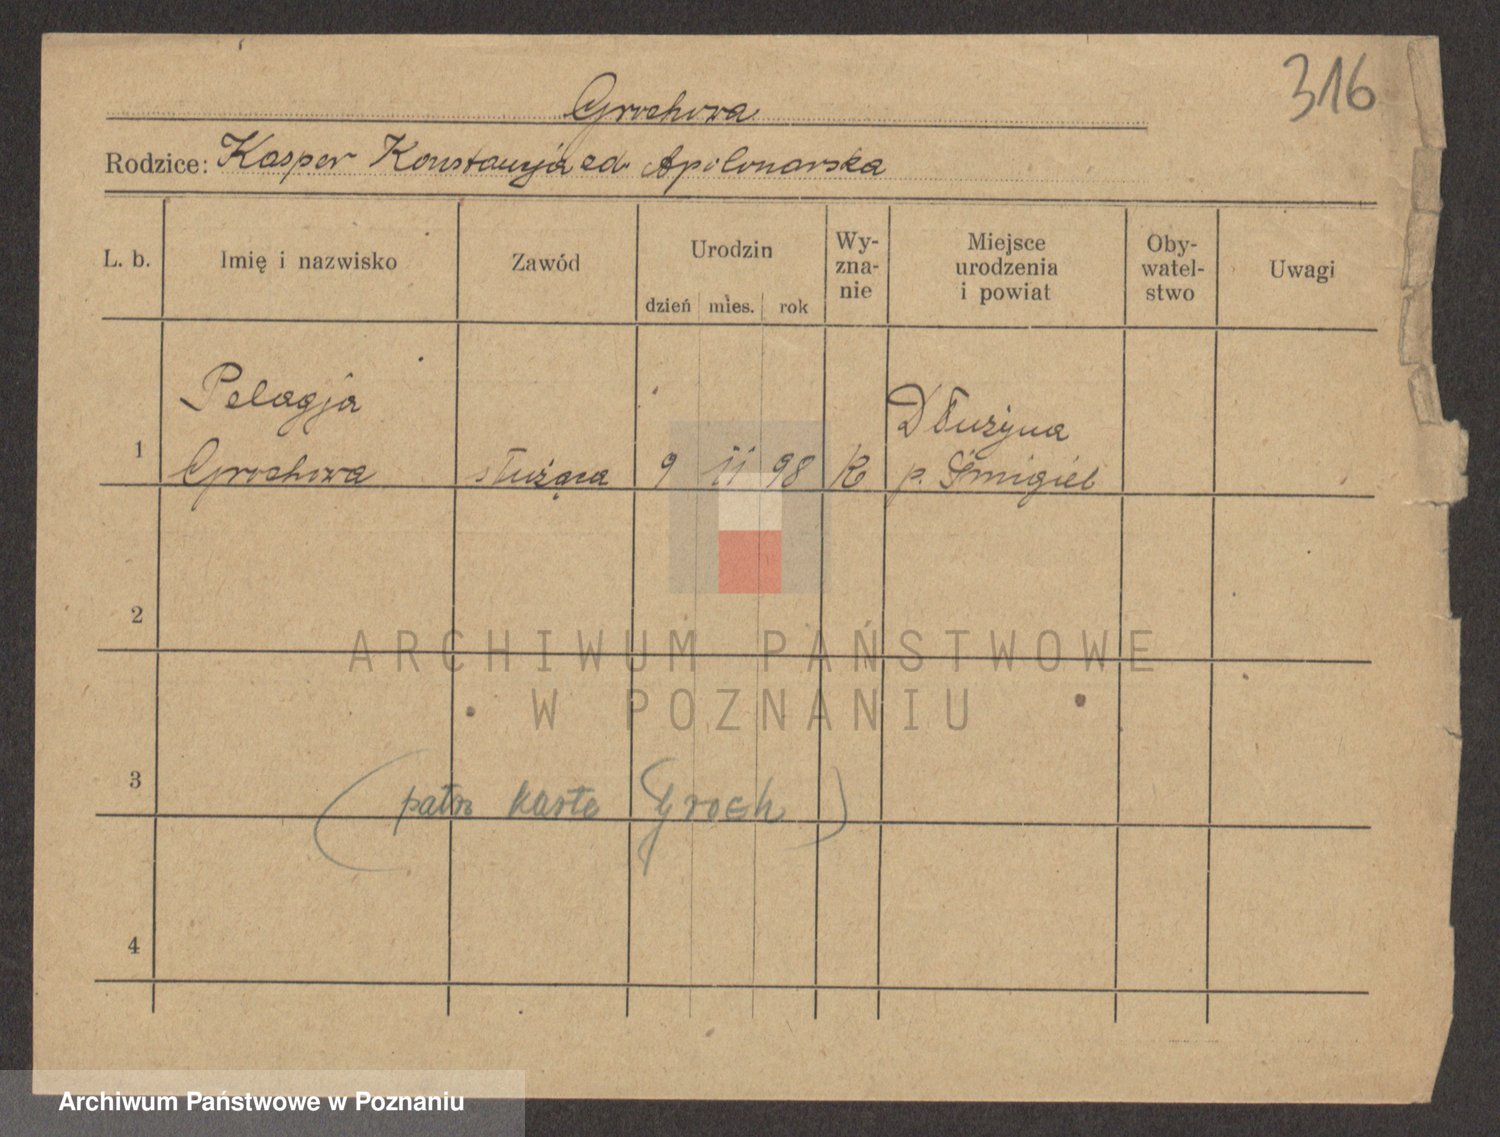 316
Grochowa
Rodzice: Kasper Konstancja zd. Apolonarska
L. b. Imię i nazwisko Zawód Urodzin Wy-zna-nie Miejsce urodzenia i powiat Oby-watel-stwo Uwagi
dzień mies. rok
Pelagja Dłużyna
1 Grochowa służąca 9 11 98 K p. Śmigiel
2
ARCHIWUM PAŃSTWOWE
W POZNANIU
3
(patrz kartę Groch)
4
Archiwum Państwowe w Poznaniu